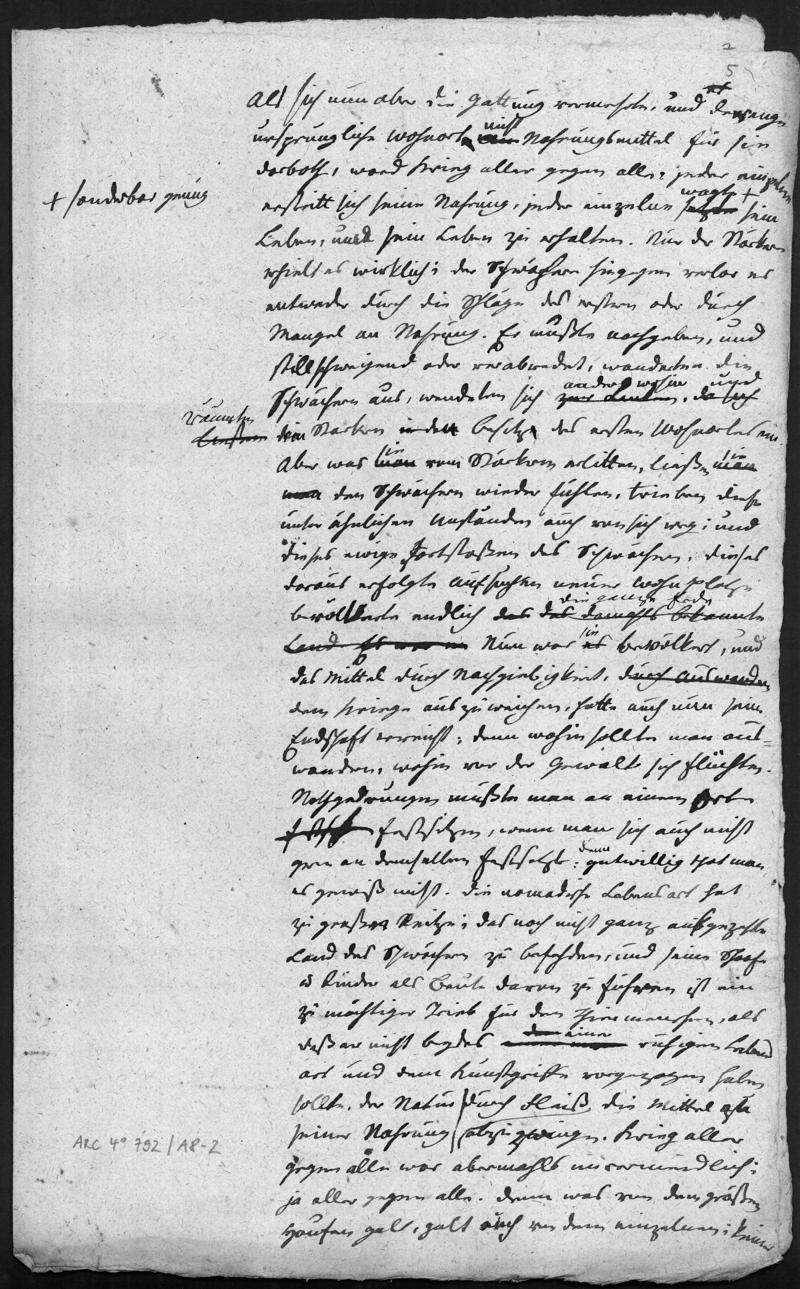 2
5
Als sich nun aber die Gattung vermehrte, und der enge
ursprüngliche Wohnort nicht Nahrungsmittel für sie
darboth, ward Krieg aller gegen alle; jeder einzelne
+ sonderbar genug
erstritt sich seine Nahrung, jeder einzelne wagte + sein
Leben, um sein Leben zu erhalten. Nur der Stärkere
erhielt es wirklich; der Schwächere hingegen verlor es
entweder durch die Schläge des erstern oder durch
Mangel an Nahrung. Er mußte nachgeben, und
stillschweigend oder verabredet, wanderten die
Schwächern aus, wendeten sich anders wohin und
räumten den Starken den Besitz des ersten Wohnortes ein.
Aber was sie vom Stärkern erlitten, ließen sie
den Schwächern wieder fühlen, trieben diese
unter ähnlichen Umständen auch von sich weg; und
dieses ewige Fortstoßen des Schwächern, dieses
daraus erfolgte Aufsuchen neuer Wohnplätze
bevölkerte endlich die ganze Erde
Nun war sie bevölkert, und
das Mittel durch Nachgiebigkeit,
dem Kriege auszuweichen, hatte auch nun seine
Endschaft erreicht; denn wohin sollte man aus-
wandern, wohin vor der Gewalt sich flüchten.
Nothgedrungen mußte man an einem Ort
festsitzen, wenn man sich auch nicht
gern an demselben festsetzte; denn gutwillig that man
es gewiß nicht. Die nomadische Lebensart hat
zu großen Reitze; das noch nicht ganz ausgezehrte
Land des Schwächern zu befehden, und seine Schafe
u Rinder als Beute davon zu führen ist ein
zu mächtiger Trieb für den Thiermenschen, als
daß er nicht beydes einer ruhigen Lebens
art und dem Kunstgriffe vorgezogen haben
sollte, der Natur durch Fleiß die Mittel zu
seiner Nahrung abzuzwingen. Krieg aller
gegen alle war abermahls unvermeidlich;
ja aller gegen alle. Denn was von dem großen
Haufen galt, galt auch von dem einzelnen; keiner
ARC 4° 792 / A8-2